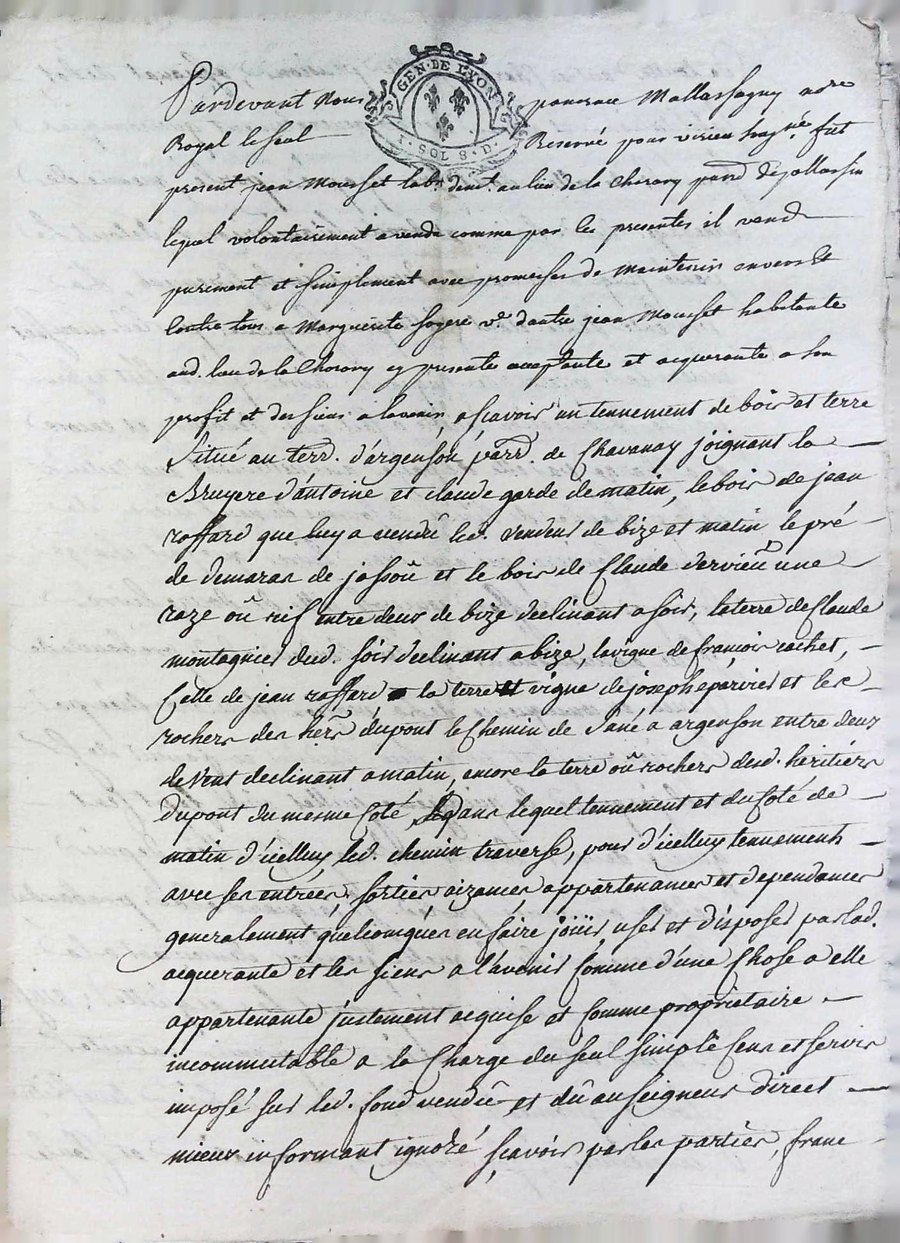 GEN·DE LYON
SOL 8·D·
Pardevant Nous pancrace Mallassagny nore
Royal le seul Reservé pour virieu soigné fut
present jean Mousset labr. demt. au lieu de la Chorary parr. de
lequel volontairement a vendu comme par les presentes il vend
purement et simplement avec promesses de Maintenir envers Et
Contre tous a Marguerite Sogere ve. d'autre jean Mousset habitante
aud. lieu de la Chorary cy presente acceptante et acquerante a son
profit et des siens a l'avenir, a sçavoir un tennement de bois et terre
Situé au terr. d'argenson parr. de Chavanay joignant la
Bruyere d'antoine et claude garde de matin, le bois de jean
raffard que luy a vendû led. vendeur de bize et matin le pré
de demaras de jassoû et le bois de Claude dervieû une
raze oû rif entre deux de bize declinant a soir, la terre de Claude
montagnier dud. soir declinant a bize, la vigne de françois rochet,
Celle de jean raffard la terre et vigne de joseph eparvier et les
rochers des hers. dupont le Chemin de a argenson entre deux
de Vent declinant a matin, encore la terre oû rochers desd. heritiers
dupont du mesme Coté, dans lequel tennement et du Coté de
matin d'icelluy led. chemin traverse, pour d'icelluy tennement
avec ses entrées, sorties aizances appartenances et dependances
generalement quelconques en faire joüir, user et disposer par lad.
acquerante et les siens a l'avenir Comme d'une Chose a elle
appartenante justement acquise et Comme proprietaire
incommutable a la Charge du seul simple Cens et servis
imposé sur led. fond vendû et dû au seigneur direct
mieux informant ignoré sçavoir par les parties, franc